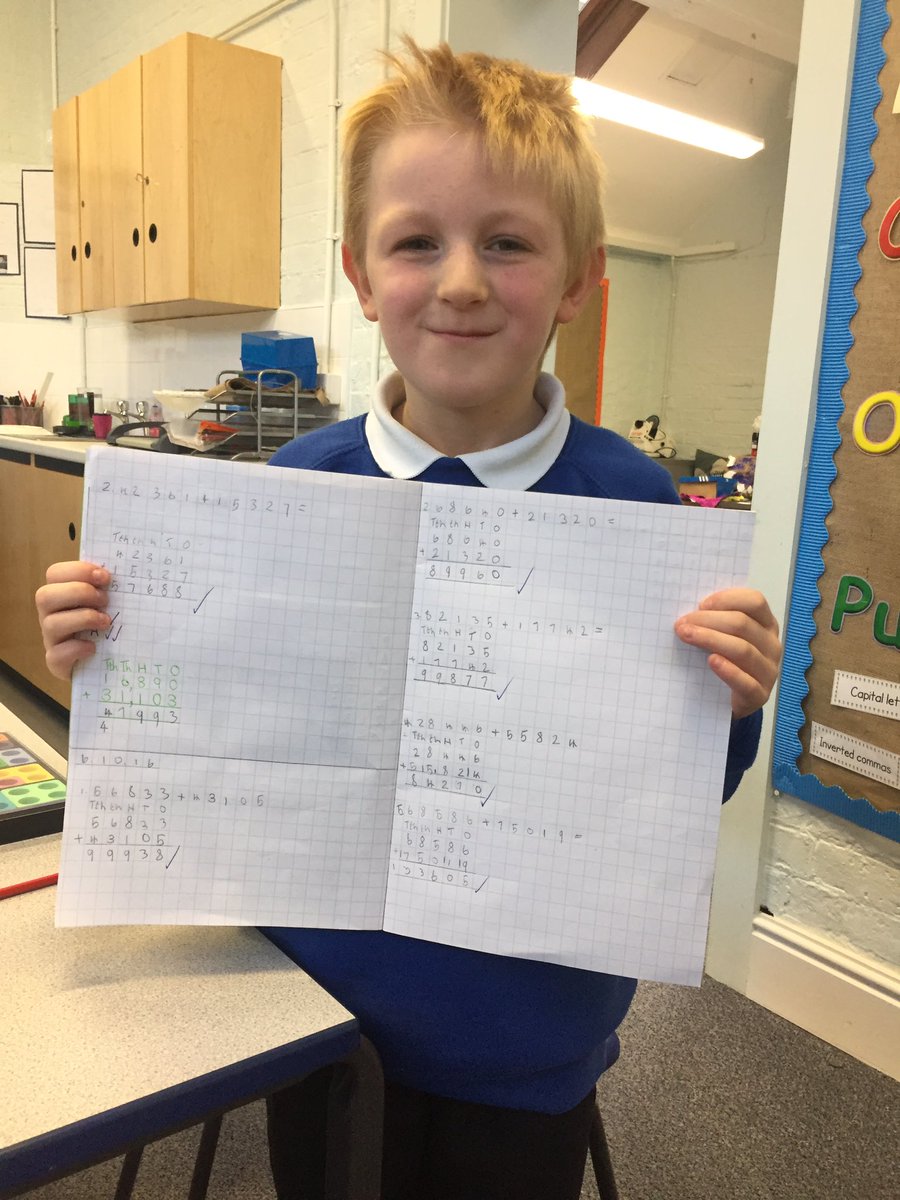 2 42361+15327=
Tth th H T O
42361
+15327
57688
Tth Th H T O
16,890
+31,103
47993
4
61016
1. 56833+43105
Tth th H T O
56833
+43105
99938
2 68640+21320=
Tth th H T O
68640
+21320
89960
3 82135+17742=
Tth th H T O
82135
+17742
99877
4 28446+55824
Tth th H T O
28446
+55824
84270
5 68586+75019=
Tth th H T O
68586
+75019
133605
O
Pu
Capital let
Inverted commas